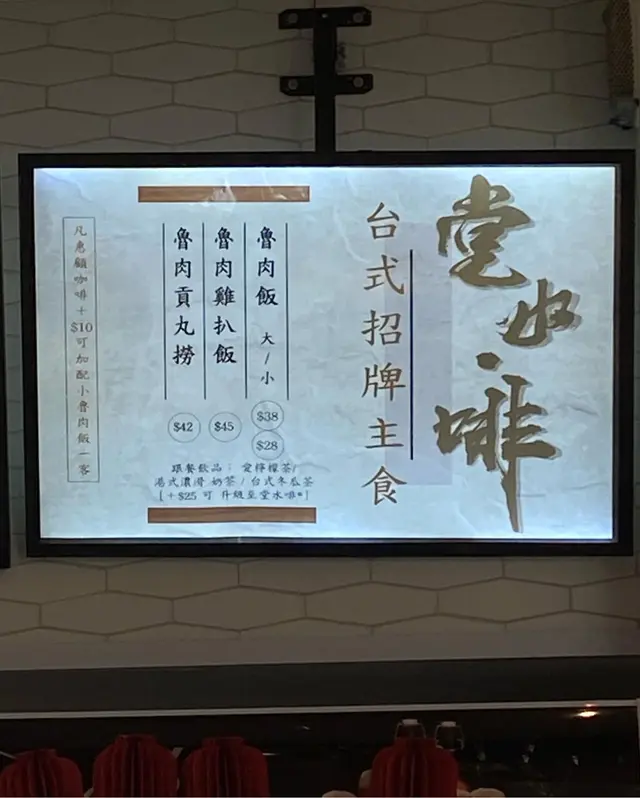 堂
啡
台式招牌主食
魯肉飯 大/小
$38
$28
魯肉雞扒飯
$45
魯肉貢丸撈
$42
跟餐飲品： 愛檸檬茶/
港式濃滑 奶茶 / 台式冬瓜茶
[ +$25 可 升級至堂水啡*]
凡惠顧咖啡+$10可加配小魯肉飯一客